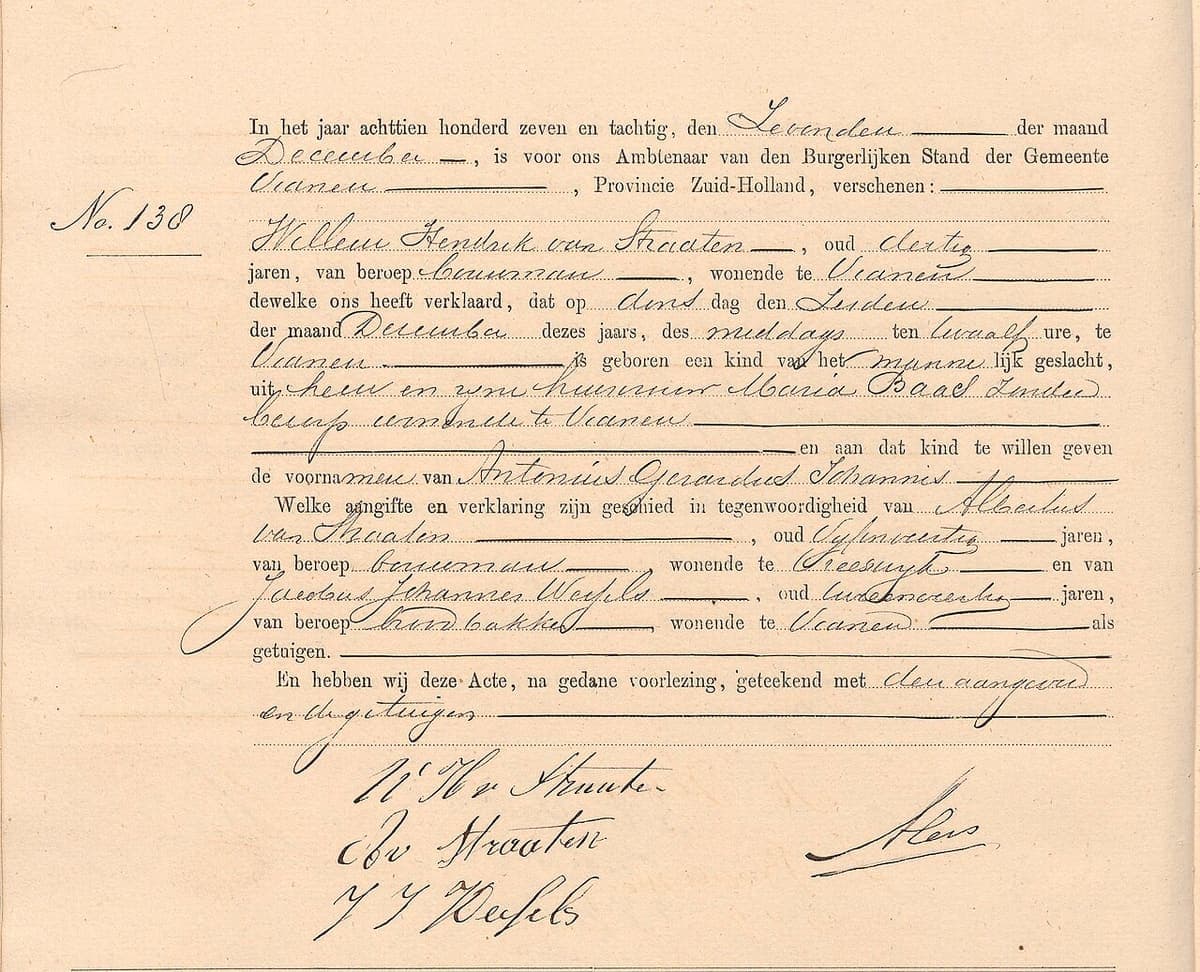 In het jaar achttien honderd zeven en tachtig, den Zevenden der maand
December, is voor ons Ambtenaar van den Burgerlijken Stand der Gemeente
Vianen, Provincie Zuid-Holland, verschenen:
No. 138
Willem Hendrik van Straaten, oud dertig
jaren, van beroep bouwman, wonende te Vianen
dewelke ons heeft verklaard, dat op dinsdag den Zesden
der maand December dezes jaars, des middags ten twaalf ure, te
Vianen is geboren een kind van het mannelijk geslacht,
uit hem en zyne huisvrouw Maria Baas zonder
beroep wonende te Vianen
en aan dat kind te willen geven
de voornamen van Antonius Gerardus Johannis
Welke aangifte en verklaring zijn geschied in tegenwoordigheid van Albertus
van Straaten, oud Vyfenveertig jaren,
van beroep bouwman, wonende te Vreeswyk en van
Jacobus Johannes Wessels, oud tweeenveertig jaren,
van beroep broodbakker, wonende te Vianen als
getuigen.
En hebben wij deze Acte, na gedane voorlezing, geteekend met den aangever
en de getuigen
W H v Straaten
A v Straaten
J J Wessels